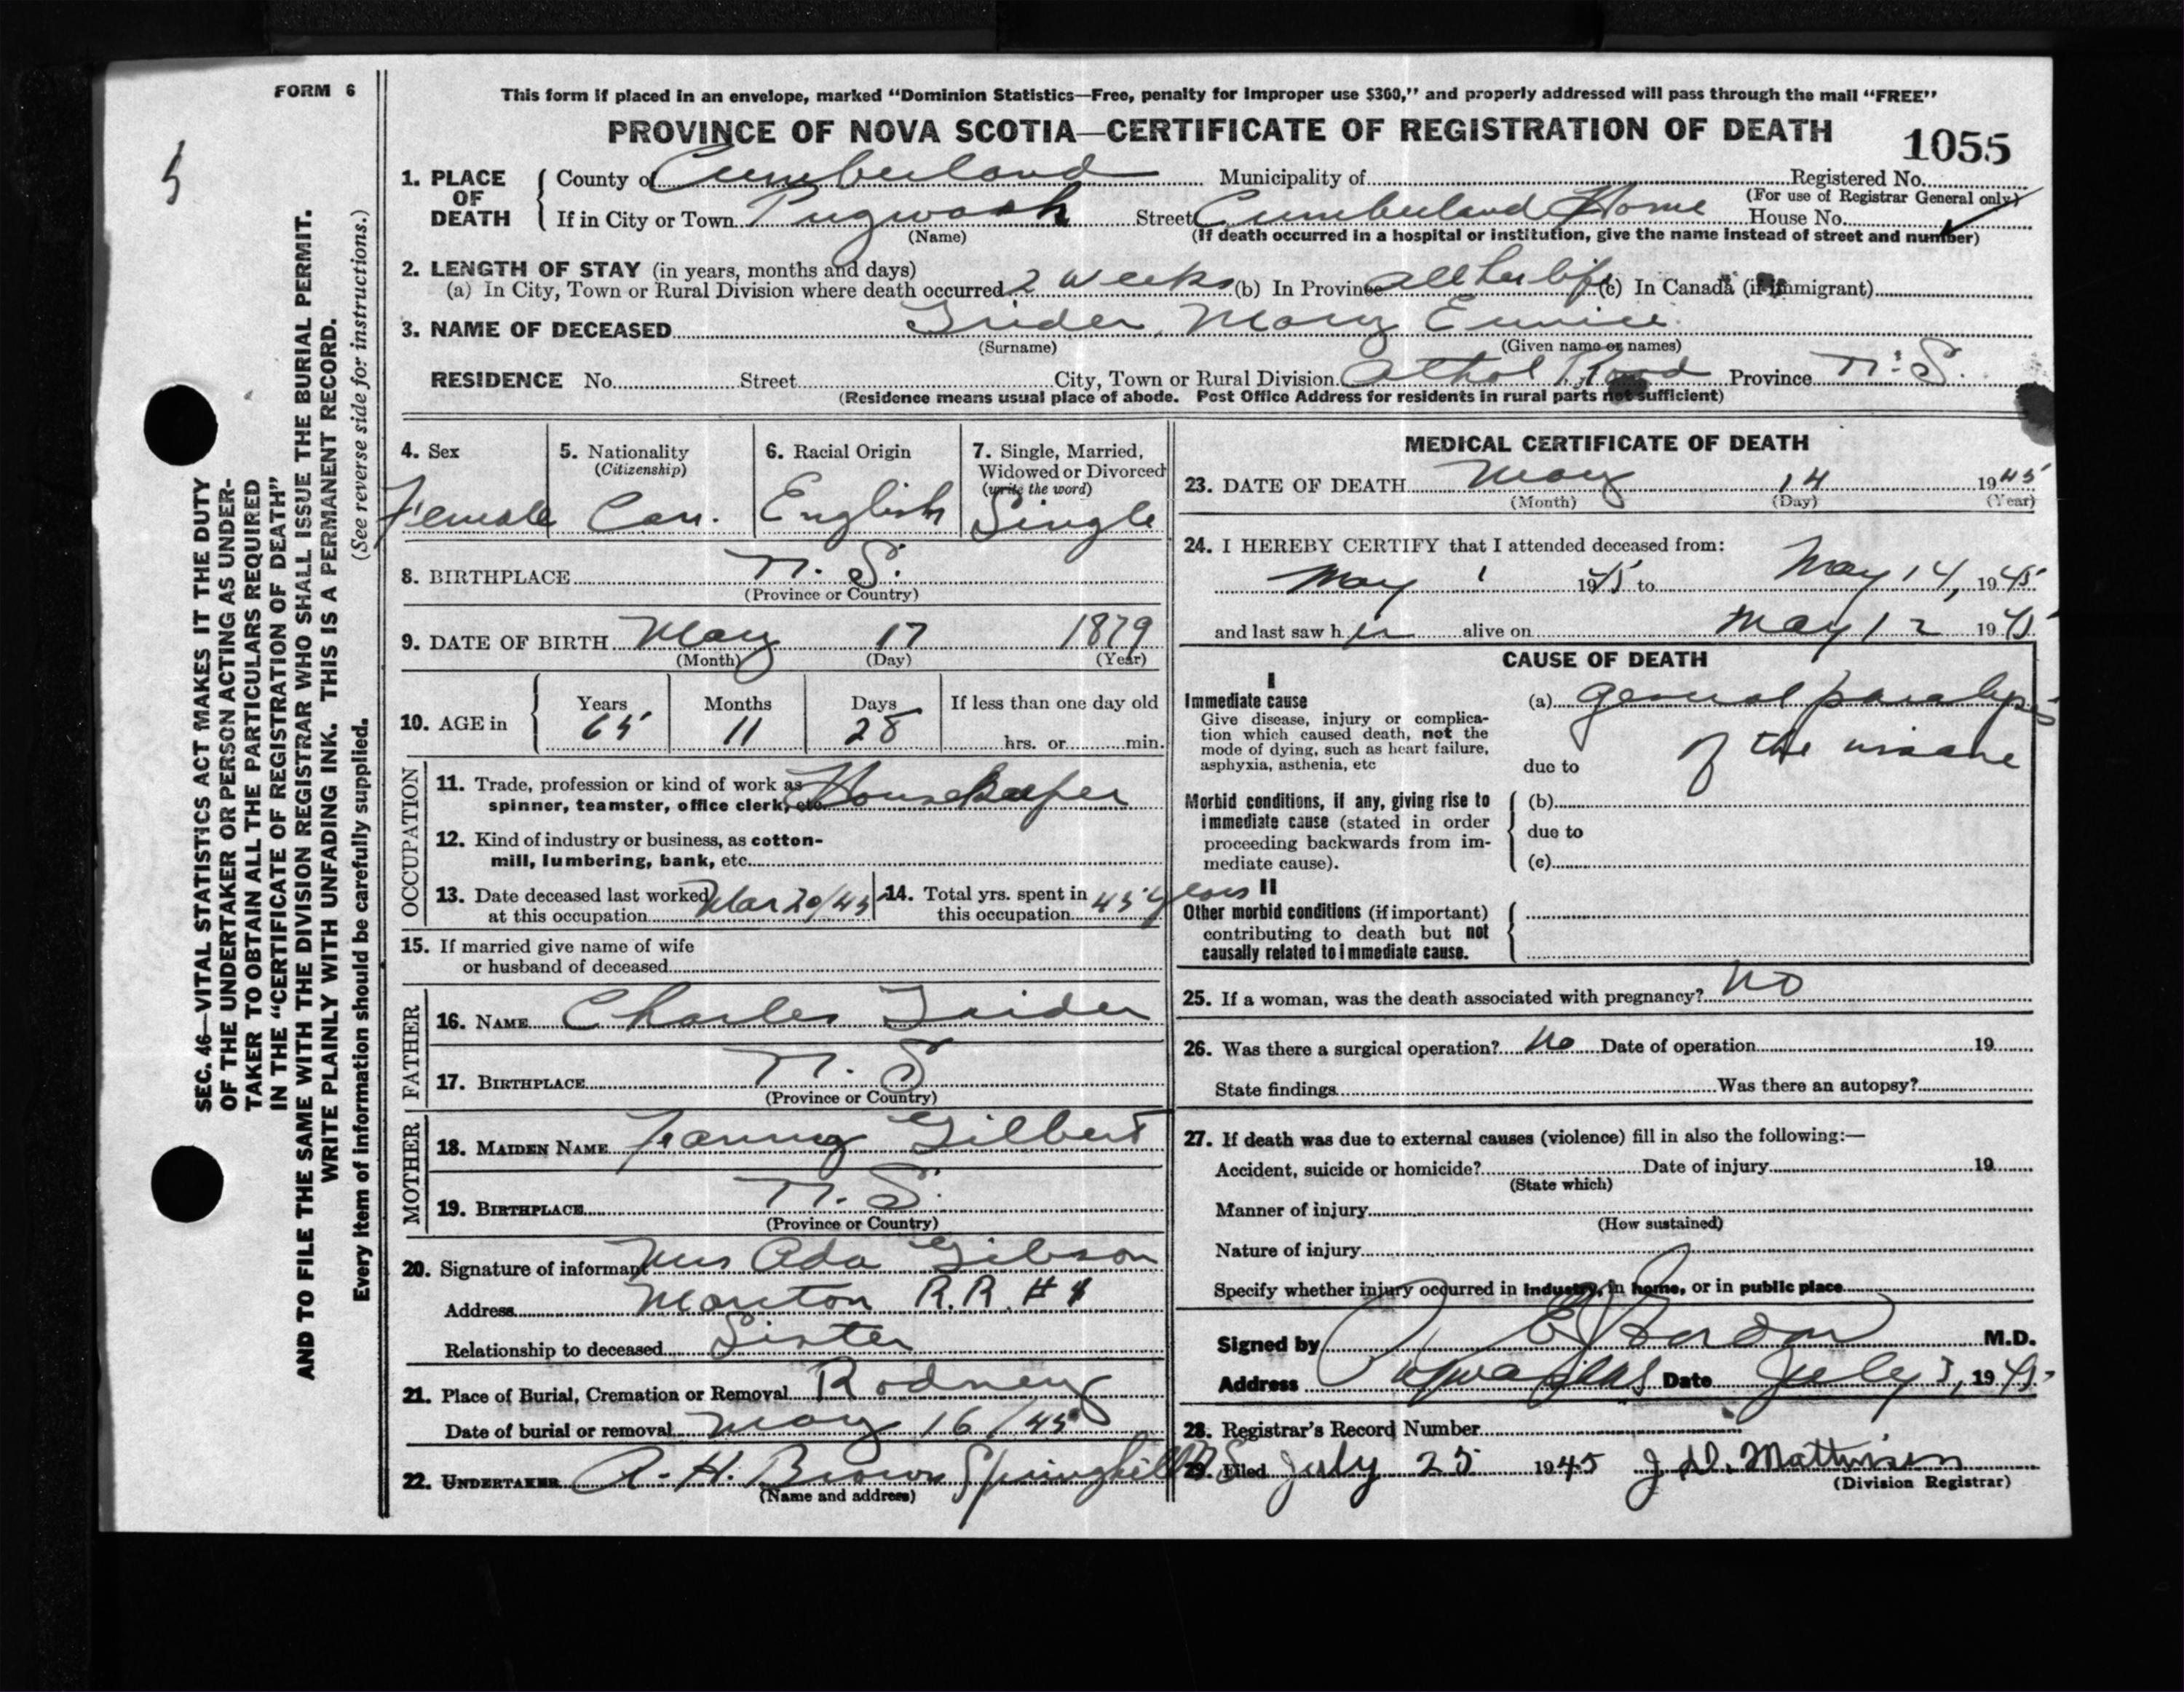 FORM 6
5
This form if placed in an envelope, marked "Dominion Statistics—Free, penalty for improper use $300," and properly addressed will pass through the mail "FREE"
PROVINCE OF NOVA SCOTIA—CERTIFICATE OF REGISTRATION OF DEATH 1055
1. PLACE OF DEATH County of Cumberland Municipality of Registered No.
(For use of Registrar General only)
If in City or Town Pugwash Street Cumberland Home House No.
(Name) (If death occurred in a hospital or institution, give the name instead of street and number)
2. LENGTH OF STAY (in years, months and days)
(a) In City, Town or Rural Division where death occurred 2 weeks (b) In Province all her life (c) In Canada (if immigrant)
3. NAME OF DECEASED Trider, Mary Eunice
(Surname) (Given name or names)
RESIDENCE No. Street City, Town or Rural Division Athol Road Province N.S.
(Residence means usual place of abode. Post Office Address for residents in rural parts not sufficient)
4. Sex 5. Nationality (Citizenship) 6. Racial Origin 7. Single, Married, Widowed or Divorced (write the word)
Female Can. English Single
8. BIRTHPLACE N.S.
(Province or Country)
9. DATE OF BIRTH May 17 1879
(Month) (Day) (Year)
10. AGE in Years Months Days If less than one day old
65 11 28 hrs. or min.
OCCUPATION
11. Trade, profession or kind of work as spinner, teamster, office clerk, etc. Housekeeper
12. Kind of industry or business, as cotton-mill, lumbering, bank, etc.
13. Date deceased last worked at this occupation Mar 20/45 14. Total yrs. spent in this occupation 45 years
15. If married give name of wife
or husband of deceased
FATHER
16. NAME Charles Trider
17. BIRTHPLACE N.S
(Province or Country)
MOTHER
18. MAIDEN NAME Fanny Gilbert
19. BIRTHPLACE N.S.
(Province or Country)
20. Signature of informant Mrs Ada Gibson
Address R.R. #1
Relationship to deceased Sister
21. Place of Burial, Cremation or Removal Rodney
Date of burial or removal May 16/45
22. UNDERTAKER A. H. Brown Springhill N.S
(Name and address)
MEDICAL CERTIFICATE OF DEATH
23. DATE OF DEATH May 14 1945
(Month) (Day) (Year)
24. I HEREBY CERTIFY that I attended deceased from:
May 1 1945 to May 14, 1945
and last saw her alive on May 12 1945
CAUSE OF DEATH
I
Immediate cause
Give disease, injury or complication which caused death, not the mode of dying, such as heart failure, asphyxia, asthenia, etc
(a) general paralysis
of the insane
due to
Morbid conditions, if any, giving rise to immediate cause (stated in order proceeding backwards from immediate cause).
(b)
due to
(c)
II
Other morbid conditions (if important) contributing to death but not causally related to immediate cause.
25. If a woman, was the death associated with pregnancy? No
26. Was there a surgical operation? No Date of operation 19
State findings Was there an autopsy?
27. If death was due to external causes (violence) fill in also the following:—
Accident, suicide or homicide? Date of injury 19
(State which)
Manner of injury
(How sustained)
Nature of injury
Specify whether injury occurred in industry, in home, or in public place
Signed by M.D.
Address Pugwash N.S Date July 3, 1945
28. Registrar's Record Number
29. Filed July 25 1945 J. D. Mattinson
(Division Registrar)
SEC. 46—VITAL STATISTICS ACT MAKES IT THE DUTY
OF THE UNDERTAKER OR PERSON ACTING AS UNDER-
TAKER TO OBTAIN ALL THE PARTICULARS REQUIRED
IN THE "CERTIFICATE OF REGISTRATION OF DEATH"
AND TO FILE THE SAME WITH THE DIVISION REGISTRAR WHO SHALL ISSUE THE BURIAL PERMIT.
WRITE PLAINLY WITH UNFADING INK. THIS IS A PERMANENT RECORD.
Every item of information should be carefully supplied. (See reverse side for instructions.)